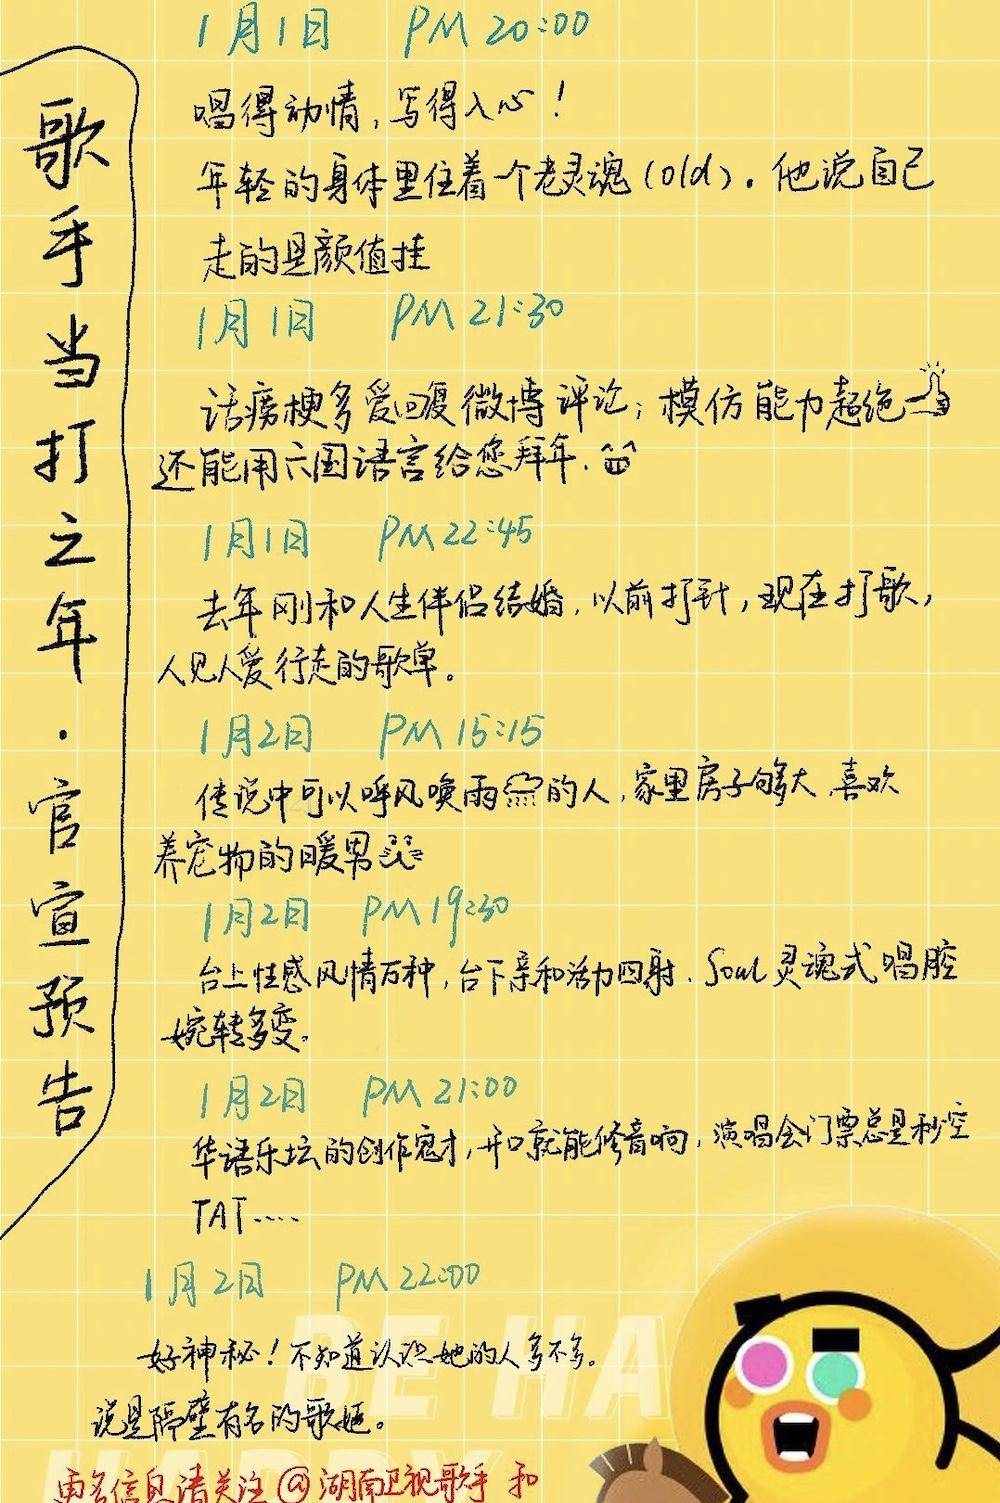 歌手当打之年·官宣预告
1月1日 PM 20:00
唱得动情,写得入心!
年轻的身体里住着一个老灵魂(old).他说自己
走的是颜值挂
1月1日 PM 21:30
话痨梗多爱回复微博评论;模仿能力超绝
还能用六国语言给您拜年.
1月1日 PM 22:45
去年刚和人生伴侣结婚,以前打针,现在打歌,
人见人爱行走的歌单。
1月2日 PM 15:15
传说中可以呼风唤雨的人,家里房子够大,喜欢
养宠物的暖男
1月2日 PM 19:30
台上性感风情万种,台下亲和活力四射.Soul灵魂式唱腔
婉转多变.
1月2日 PM 21:00
华语乐坛的创作鬼才,开口就能修音响,演唱会门票总是秒空
TAT....
1月2日 PM 22:00
好神秘!不知道认识她的人多不多。
说是隔壁有名的歌姬。
更多信息请关注@湖南卫视歌手 和
BE HA
HAPPY